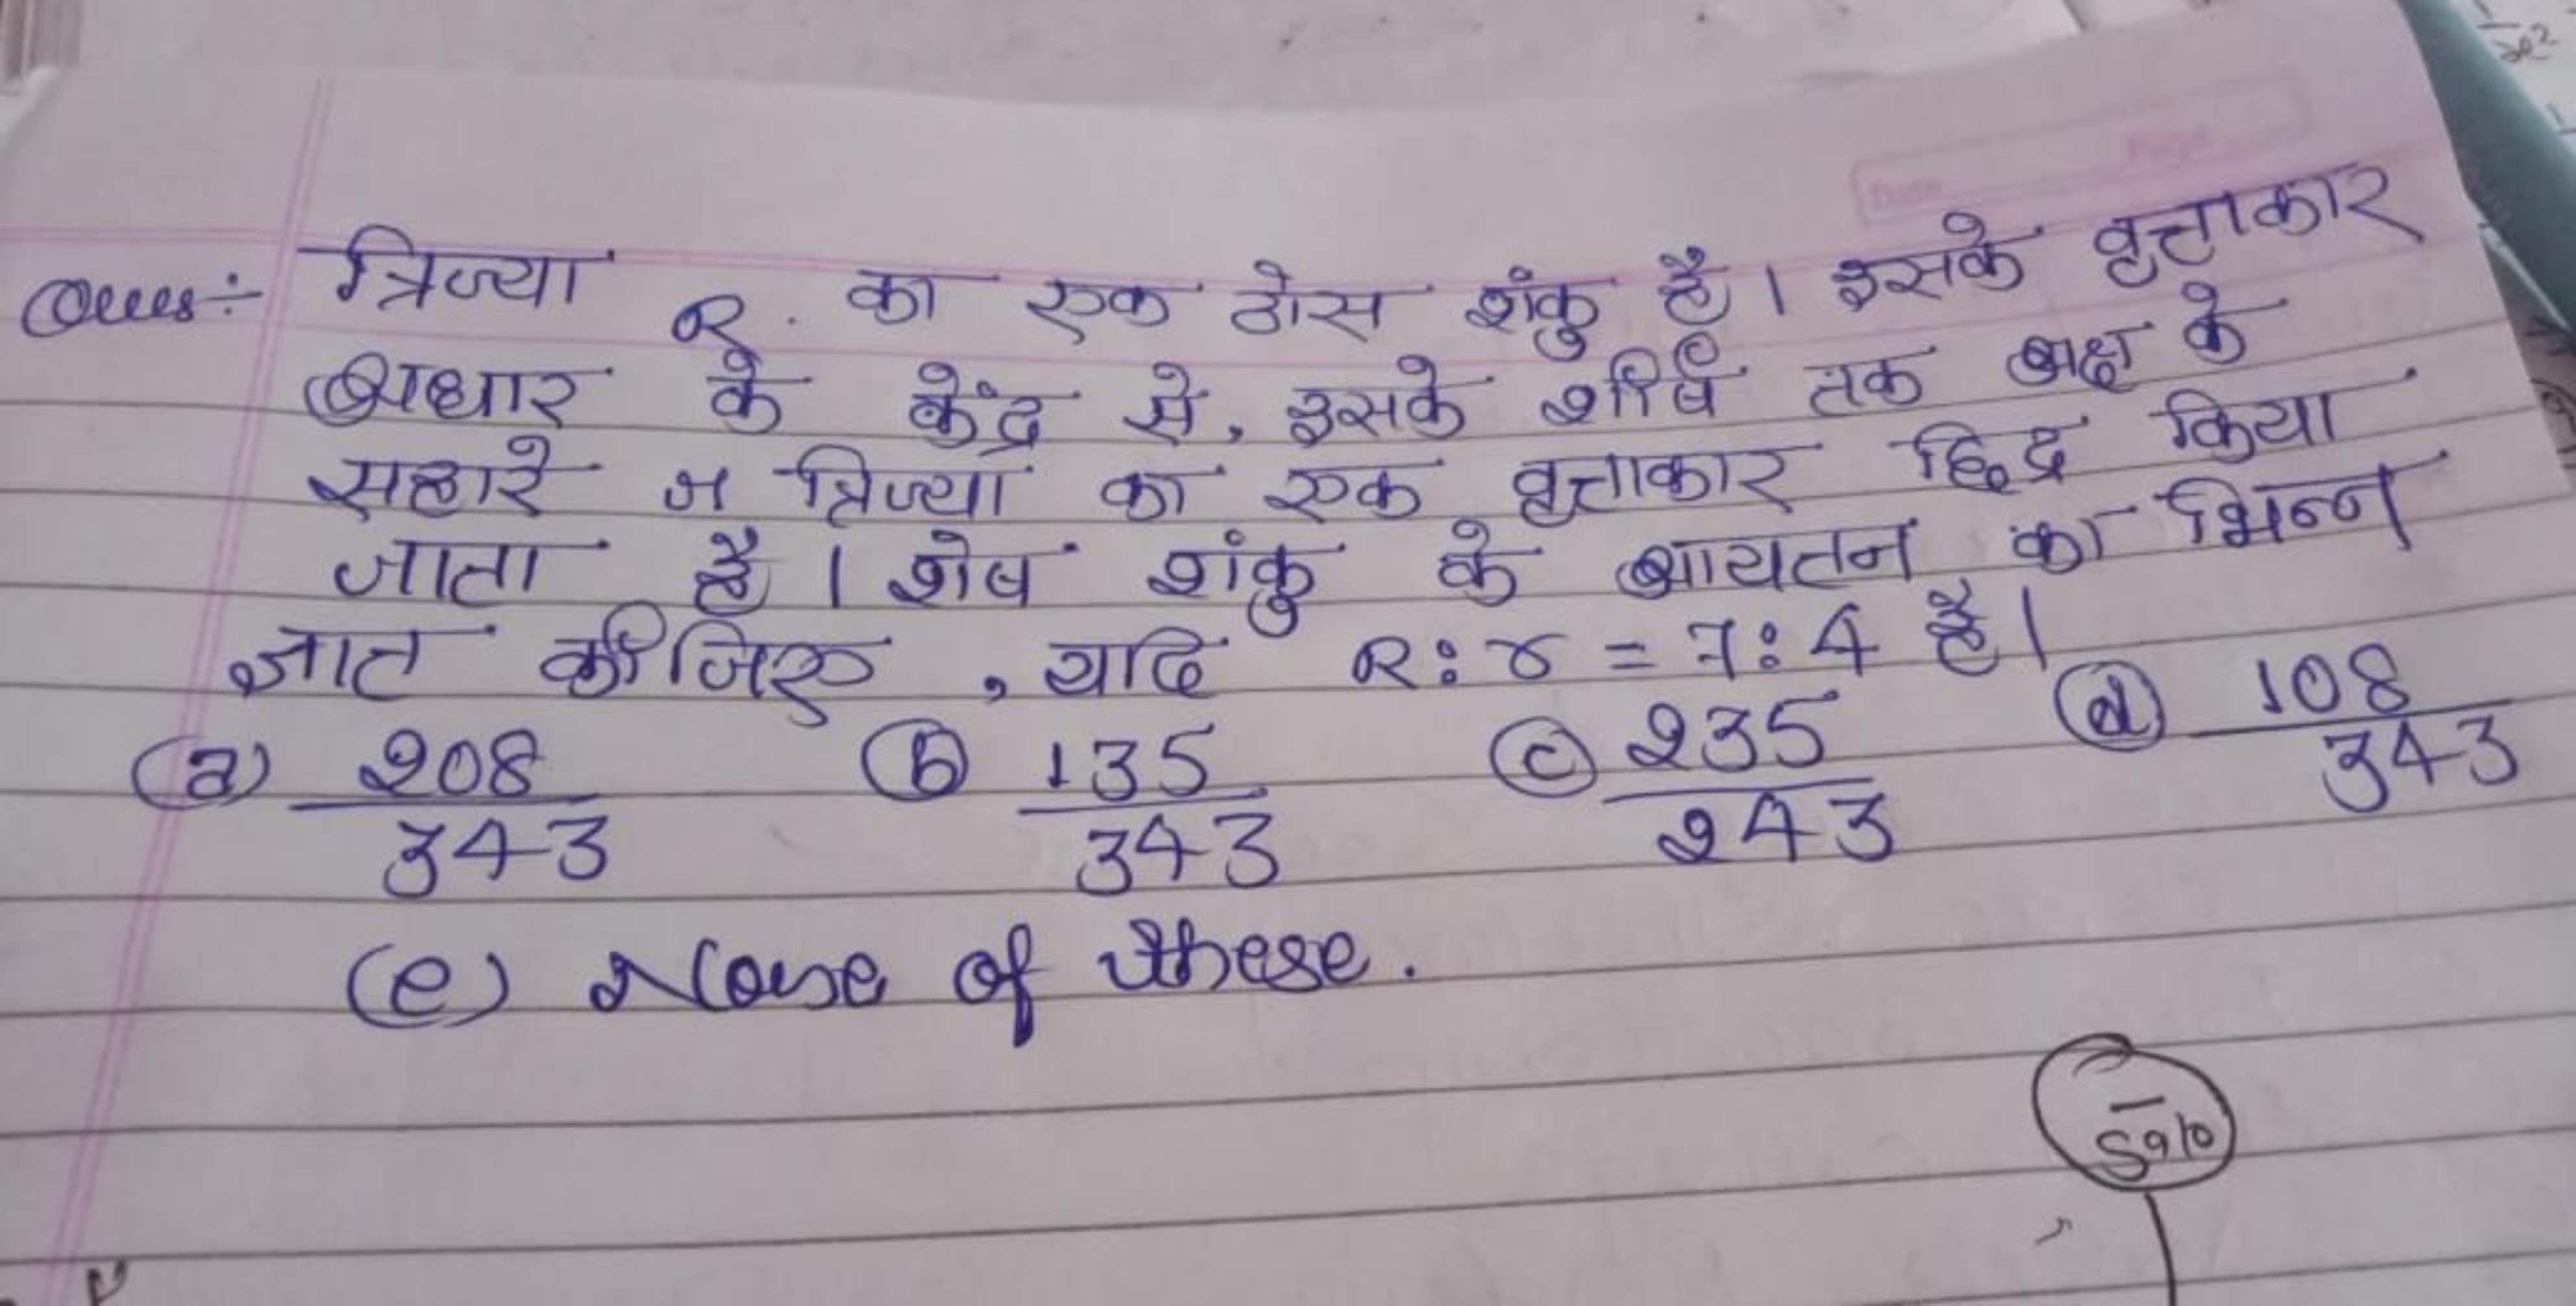 Ques:- त्रिज्या R. का एक ठोस शंकु है। इसके वृत्ताकार
आधार के केंद्र से, इसके शीर्ष तक अक्ष के
सहारे r त्रिज्या का एक वृत्ताकार छिद्र किया
जाता है। शेष शंकु के आयतन का भिन्न
ज्ञात कीजिए, यदि R:r = 7:4 है।
(a) 208/343 (b) 135/343 (c) 235/243 (d) 108/343
(e) None of these.